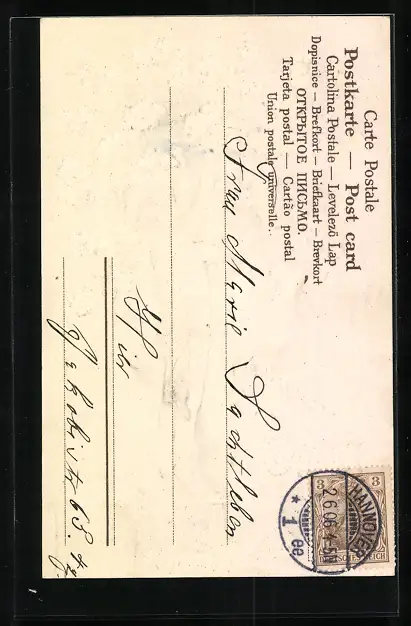 Carte Postale
Postkarte — Post card
Cartolina Postale — Levelező Lap
Dopisnice — Brefkort — Briefkaart — Brevkort
ОТКРЫТОЕ ПИСЬМО.
Tarjeta postal — Cartão postal
Union postale universelle.
3 3
HANNOVER
2.6.06. 4-5N
* 1 ee
Frau Marie Sachtleben
Hier
Jakobistr 63.